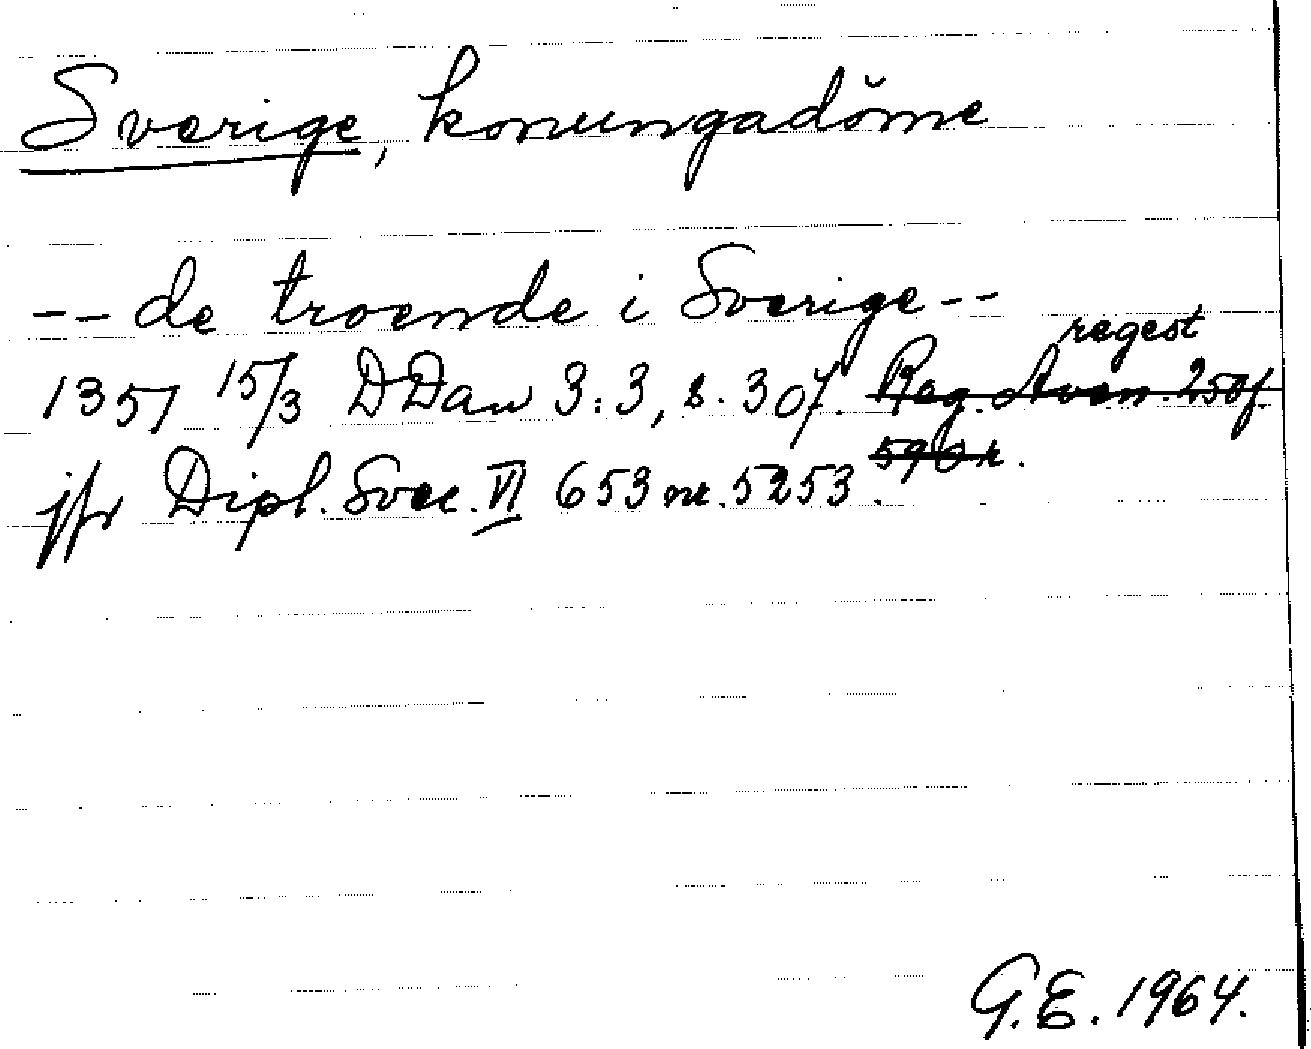 Sverige, konungadöme
-- de troende i Sverige --
regest
1351 15/3 DDan 3:3, s. 307. Reg. Aven. 250f.
596 r.
jfr Dipl. Svec. VI 653 nr. 5253.
G.E. 1964.